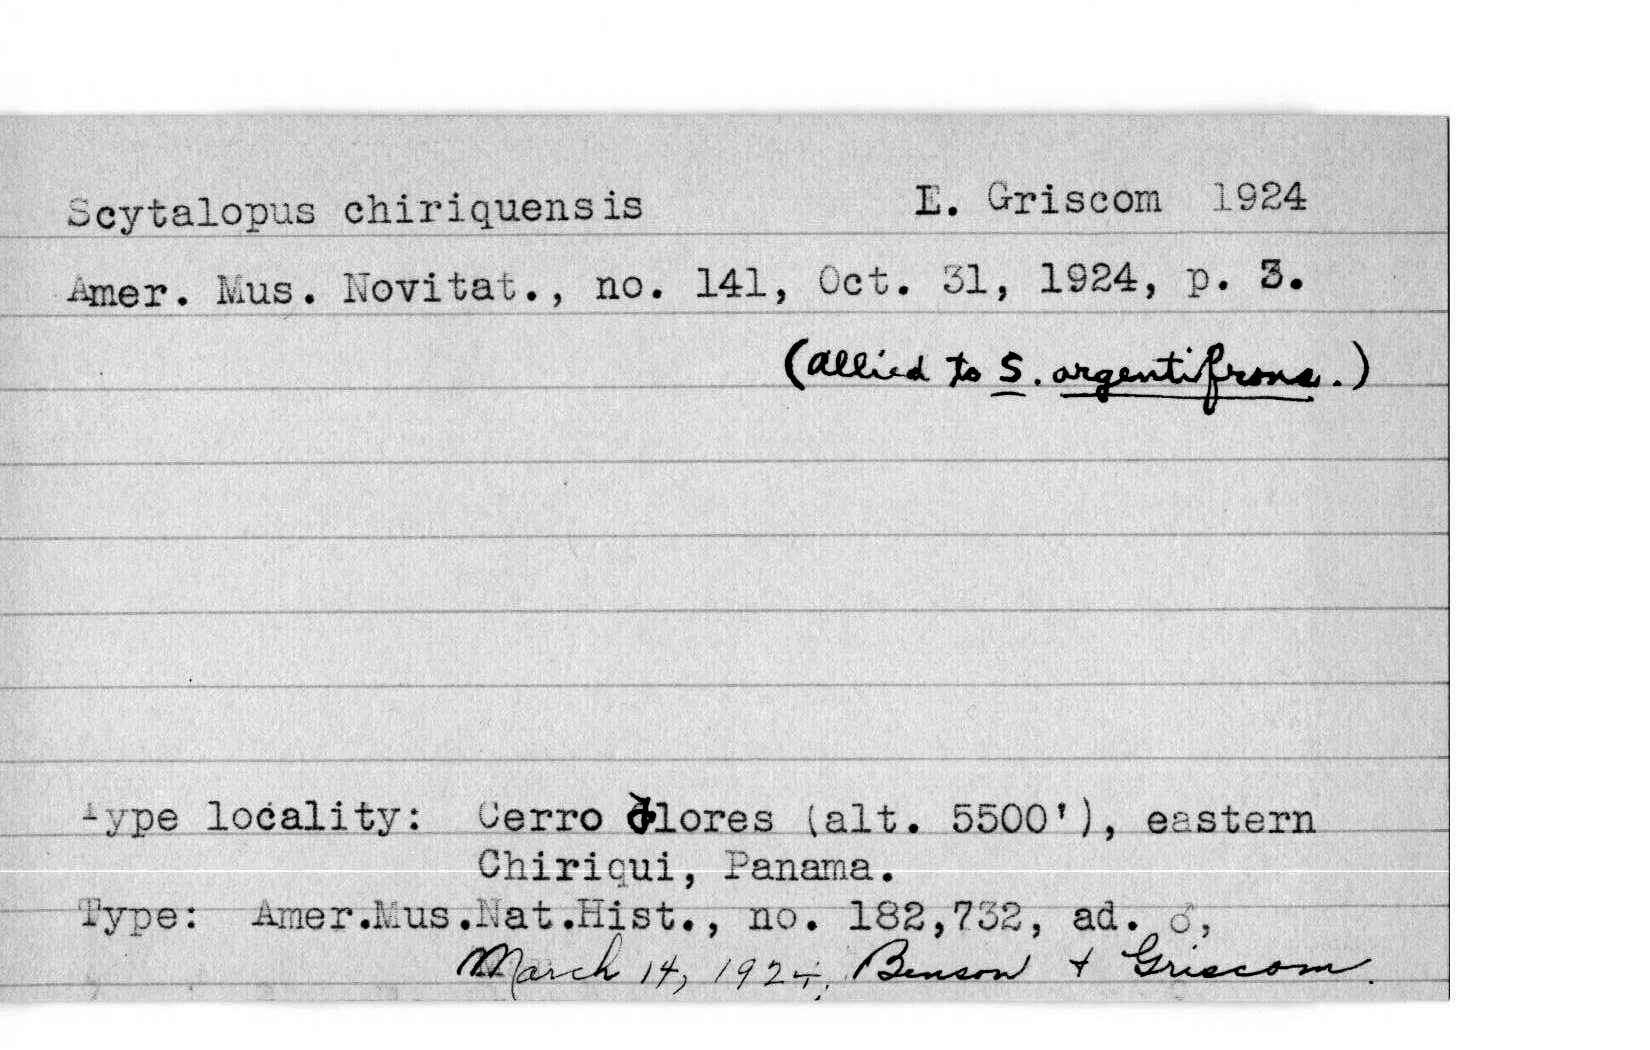 Scytalopus chiriquensis E. Griscom 1924
Amer. Mus. Novitat., no. 141, Oct. 31, 1924, p. 3.
(allied to S. argentifrons.)
Type locality: Cerro Flores (alt. 5500'), eastern
Chiriqui, Panama.
Type: Amer.Mus.Nat.Hist., no. 182,732, ad. ♂,
March 14, 1924, Benson + Griscom.